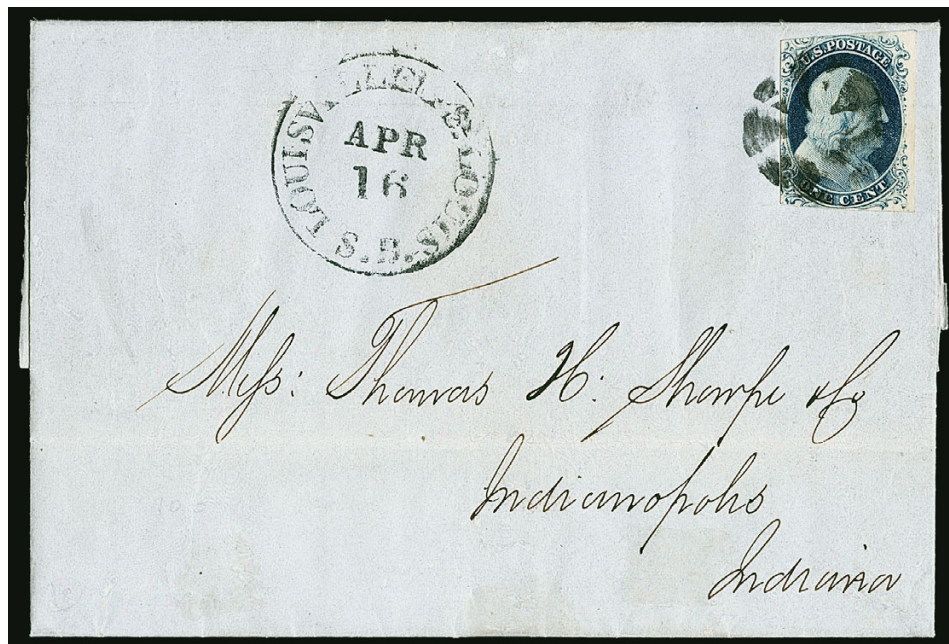 LOUISVILLE LOUIS. S.B.
APR
16
U.S. POSTAGE
ONE CENT
Mess: Thomas H: Sharpe & Co
Indianopolis
Indiana